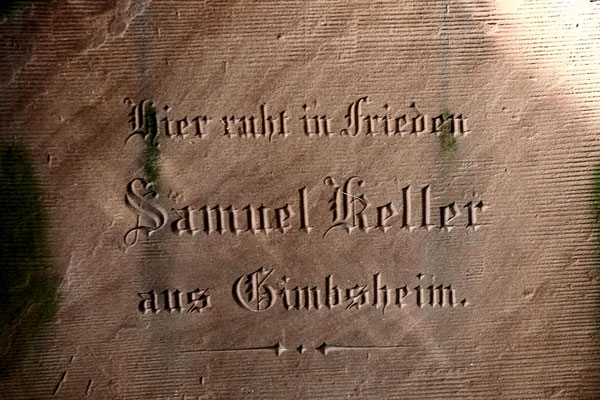 Hier ruht in Frieden
Samuel Keller
aus Gimbsheim.